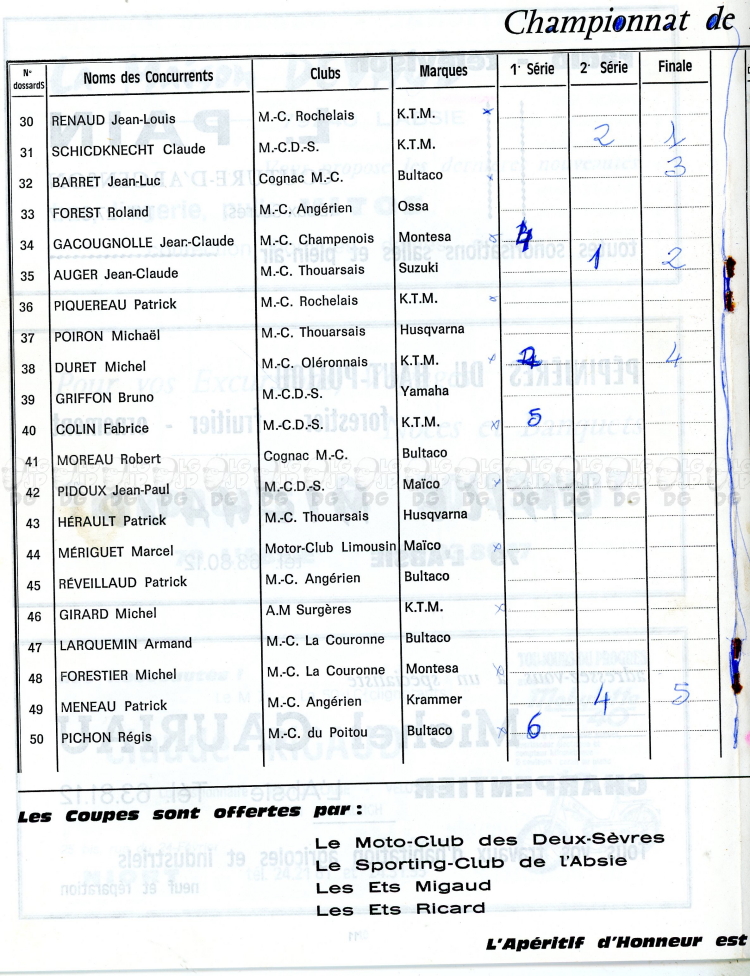 Championnat de
N° dossards Noms des Concurrents Clubs Marques 1e Série 2e Série Finale
30 RENAUD Jean-Louis M.-C. Rochelais K.T.M. x
31 SCHICDKNECHT Claude M.-C.D.-S. K.T.M. 2 1
32 BARRET Jean-Luc Cognac M.-C. Bultaco x 3
33 FOREST Roland M.-C. Angérien Ossa
34 GACOUGNOLLE Jean-Claude M.-C. Champenois Montesa x 4
35 AUGER Jean-Claude M.-C. Thouarsais Suzuki 1 2
36 PIQUEREAU Patrick M.-C. Rochelais K.T.M. x
37 POIRON Michaël M.-C. Thouarsais Husqvarna
38 DURET Michel M.-C. Oléronnais K.T.M. x 4
39 GRIFFON Bruno M.-C.D.-S. Yamaha
40 COLIN Fabrice M.-C.D.-S. K.T.M. x 5
41 MOREAU Robert Cognac M.-C. Bultaco
42 PIDOUX Jean-Paul M.-C.D.-S. Maïco x
43 HÉRAULT Patrick M.-C. Thouarsais Husqvarna
44 MÉRIGUET Marcel Motor-Club Limousin Maïco x
45 RÉVEILLAUD Patrick M.-C. Angérien Bultaco
46 GIRARD Michel A.M Surgères K.T.M. x
47 LARQUEMIN Armand M.-C. La Couronne Bultaco
48 FORESTIER Michel M.-C. La Couronne Montesa x
49 MENEAU Patrick M.-C. Angérien Krammer 4 5
50 PICHON Régis M.-C. du Poitou Bultaco x 6
Les Coupes sont offertes par :
Le Moto-Club des Deux-Sèvres
Le Sporting-Club de l'Absie
Les Ets Migaud
Les Ets Ricard
L'Apéritif d'Honneur est